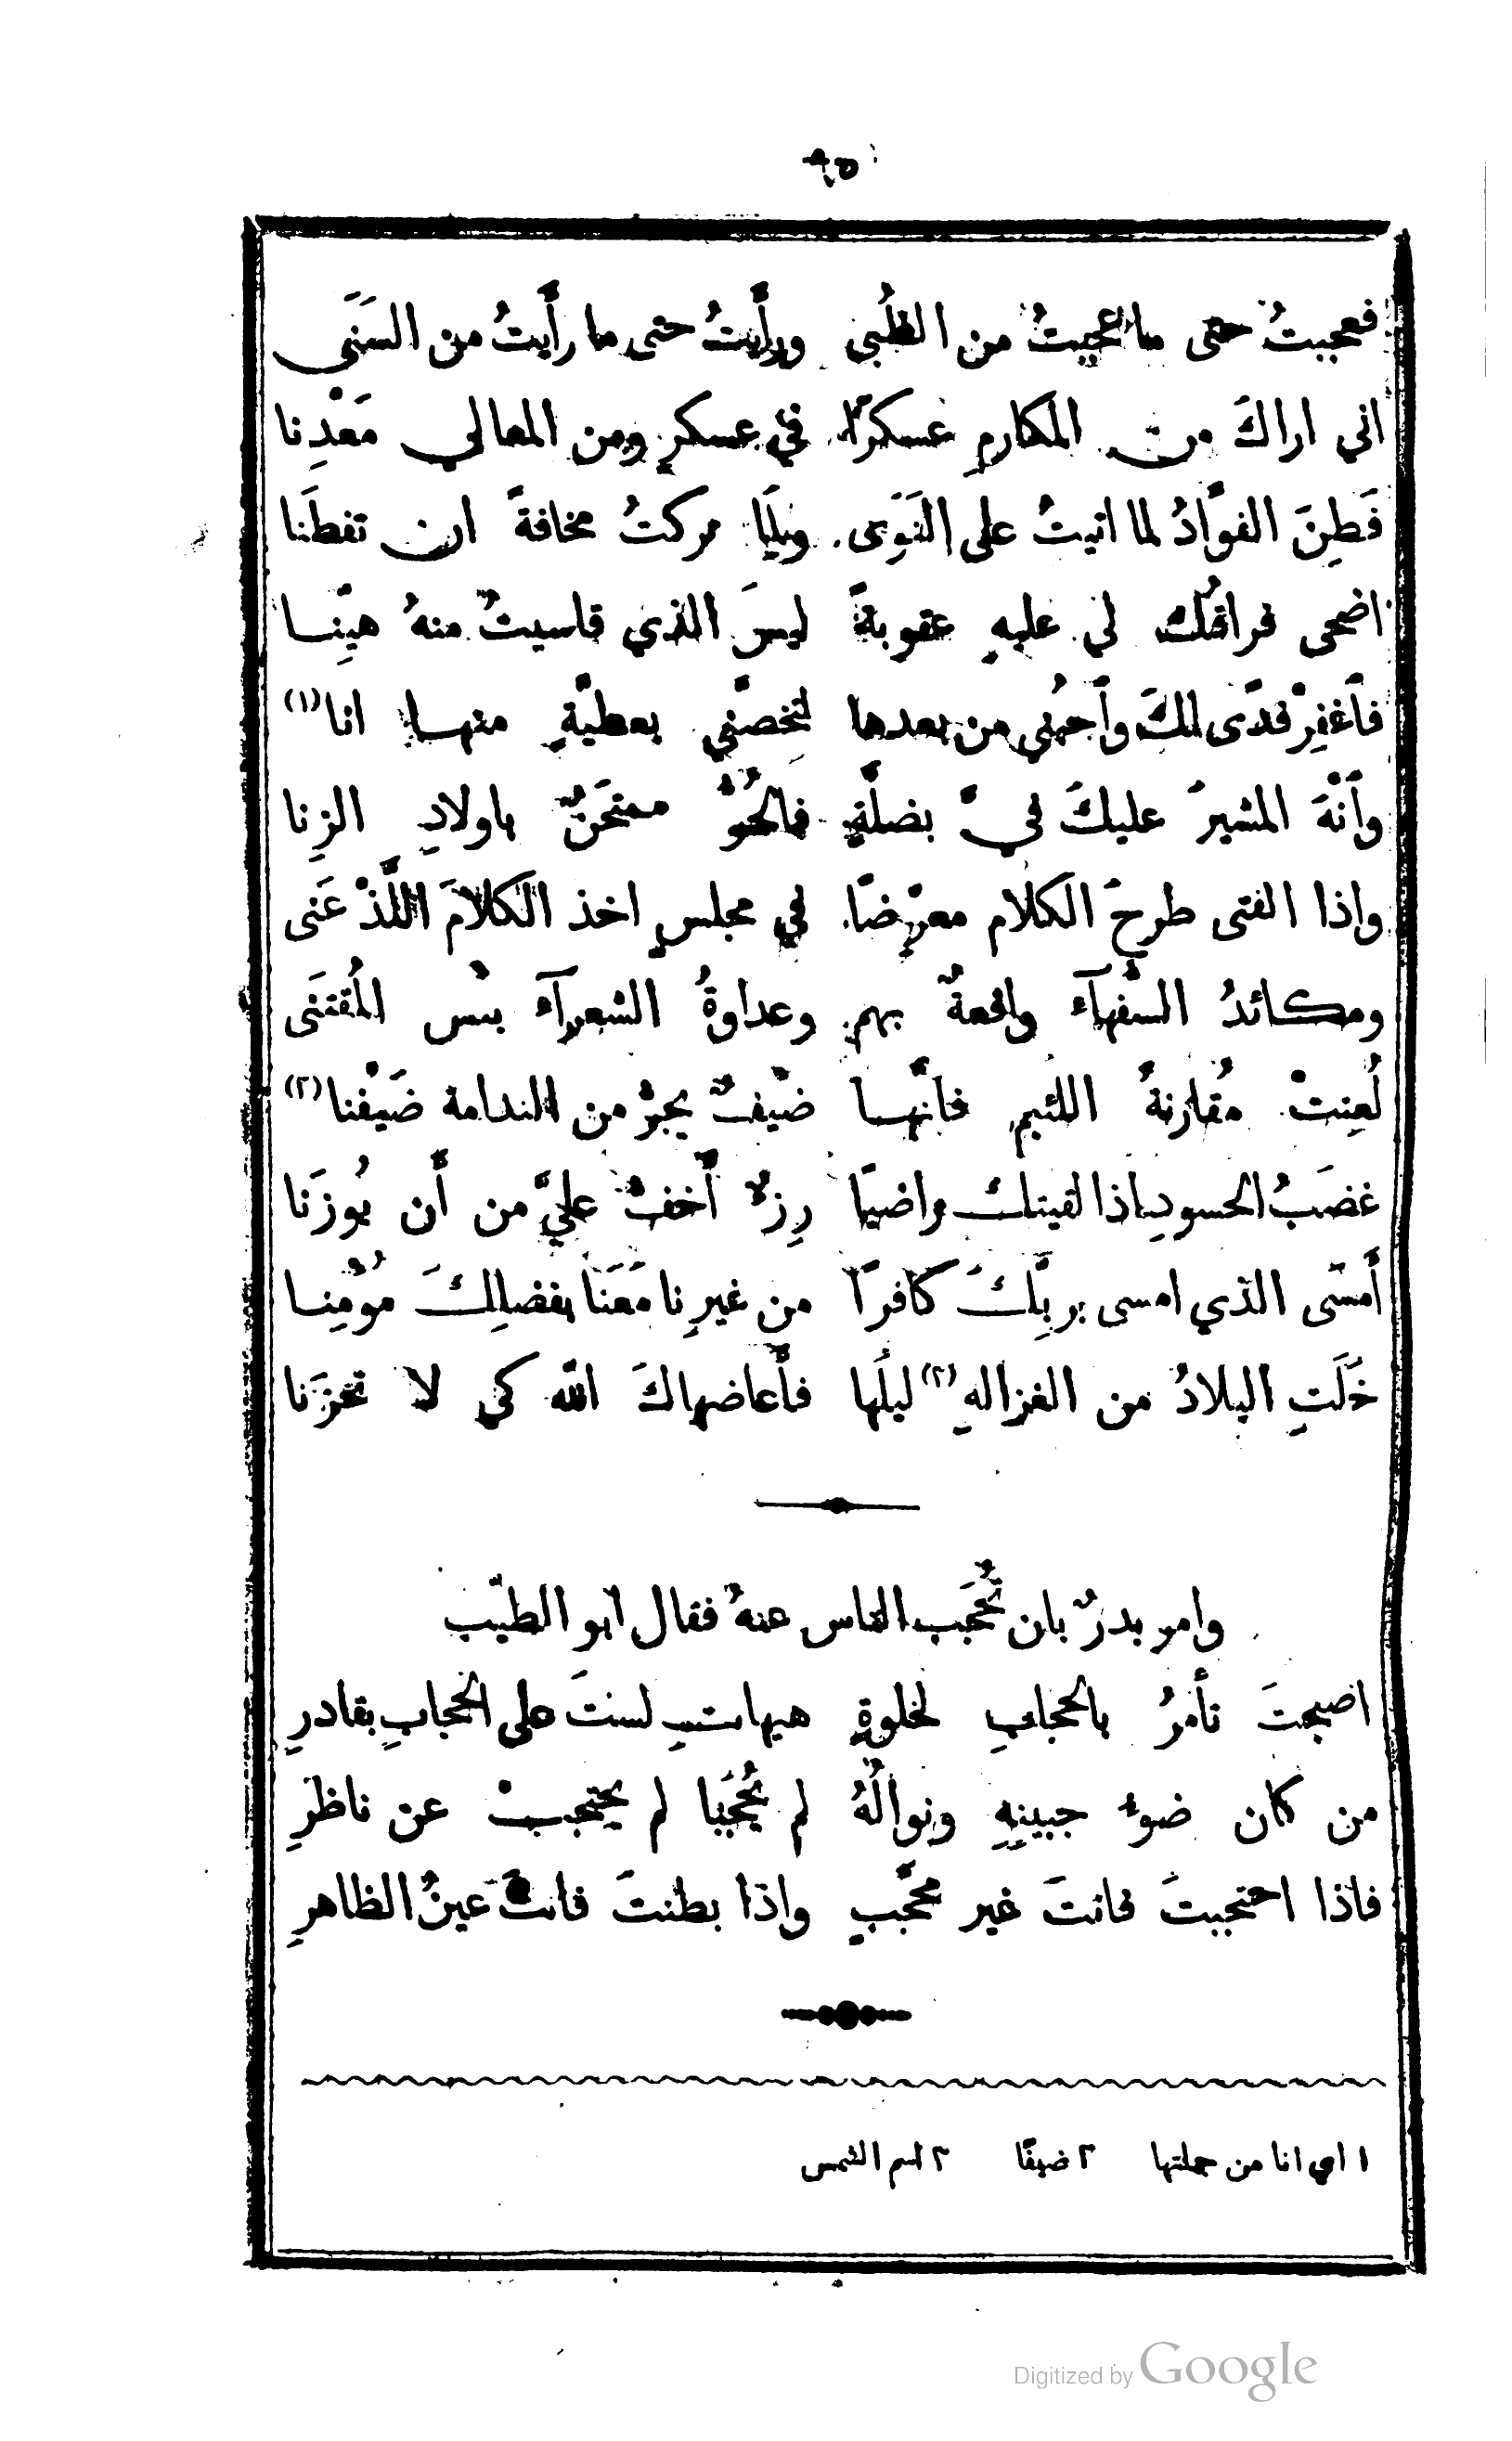 ٩٥
فعجبتُ حتى ما عجبتُ من الظُبى ورأَيتُ حتى ما رأَيتُ من السَنَى
اني اراكَ من المكارمِ عسكرًا في عسكرٍ ومن المعالي مَعْدِنا
فَطِنَ الفوَّادُ لما اتيتُ على النَوَى ولِمَا تركتُ مخافةً ان تفطَنا
اضحى فراقُك لي عليهِ عقوبةً ليسَ الذي قاسيتُ منهُ هيّنِا
فاَغفِرْ فدًى لكَ واَحبُني من بعدها لتِخصّني بعطيّةٍ منها انا (١)
واَنْهَ المشيرَ عليكَ فيَّ بضلّةٍ فالحُرُّ ممتحَنٌ باولادِ الزِنا
واذا الفتى طرحَ الكلام معرّضًا في مجلسٍ اخذ الكلامَ اللَّذْ عَنَى
ومكائدُ السُّفهآء واقعةٌ بهم وعداوةُ الشعرآء بئس المُقتنَى
لُعِنتْ مُقارنةُ اللئيمِ فانّها ضيْفٌ يجرُّ من الندامة ضَيْفنا (٢)
غضَبُ الحسودِ اذا لقيتك راضيًا رِزءٌ أَخفُّ عليَّ من أَن يُوزَنا
أَمسَى الذي امسى بربِّكَ كافرًا من غيرِنا مَعَنَا بفضلِكَ مُوْمِنا
خَلَتِ البلادُ من الغزالهِ (٣) ليلَها فأَعاضهاكَ الله كي لا تحزَنا
وامر بدرٌ بان تُحجَب الناس عنهُ فقال ابو الطيّب
اصبحتَ تأمرُ بالحجابِ لخلوةٍ هيهات لستَ على الحجابِ بقادرِ
من كان ضوءُ جبينِهِ ونوالُهُ لم يُحجَبا لم يحتجبْ عن ناظرِ
فاذا احتجبتَ فانتَ غير محجَّبٍ واذا بطنتَ فانتَ عينُ الظاهرِ
١ اي انا من جملتها ٢ ضيفًا ٣ اسم الشمس
Digitized by Google